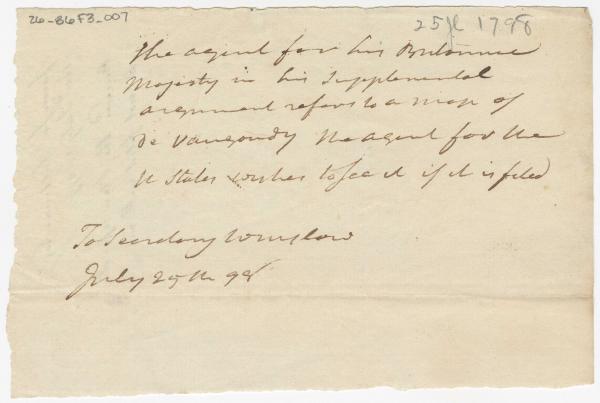 26-86F3_007
25 Jl 1798
The agent for his Britannic
Majesty in his Supplemental
argument refers to a map of
De Vaugondy the agent for the
U States wishes to see it if it is filed
To Secretary Winslow
July 25th 98